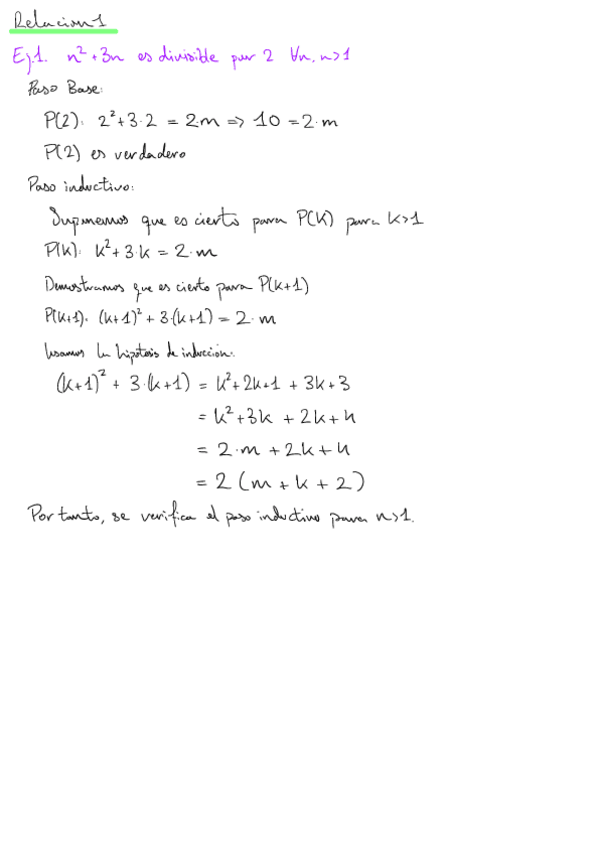 Relacion 1
Ej.1. n²+3n es divisible por 2 ∀n, n>1
Paso Base:
P(2): 2²+3·2 = 2·m => 10 = 2·m
P(2) es verdadero
Paso inductivo:
Suponemos que es cierto para P(k) para k>1
P(k): k²+3·k = 2·m
Demostramos que es cierto para P(k+1)
P(k+1): (k+1)² + 3·(k+1) = 2·m
Usamos la hipótesis de inducción:
(k+1)² + 3·(k+1) = k²+2k+1 + 3k+3
= k²+3k + 2k+4
= 2·m + 2k+4
= 2 (m + k + 2)
Por tanto, se verifica el paso inductivo para n>1.